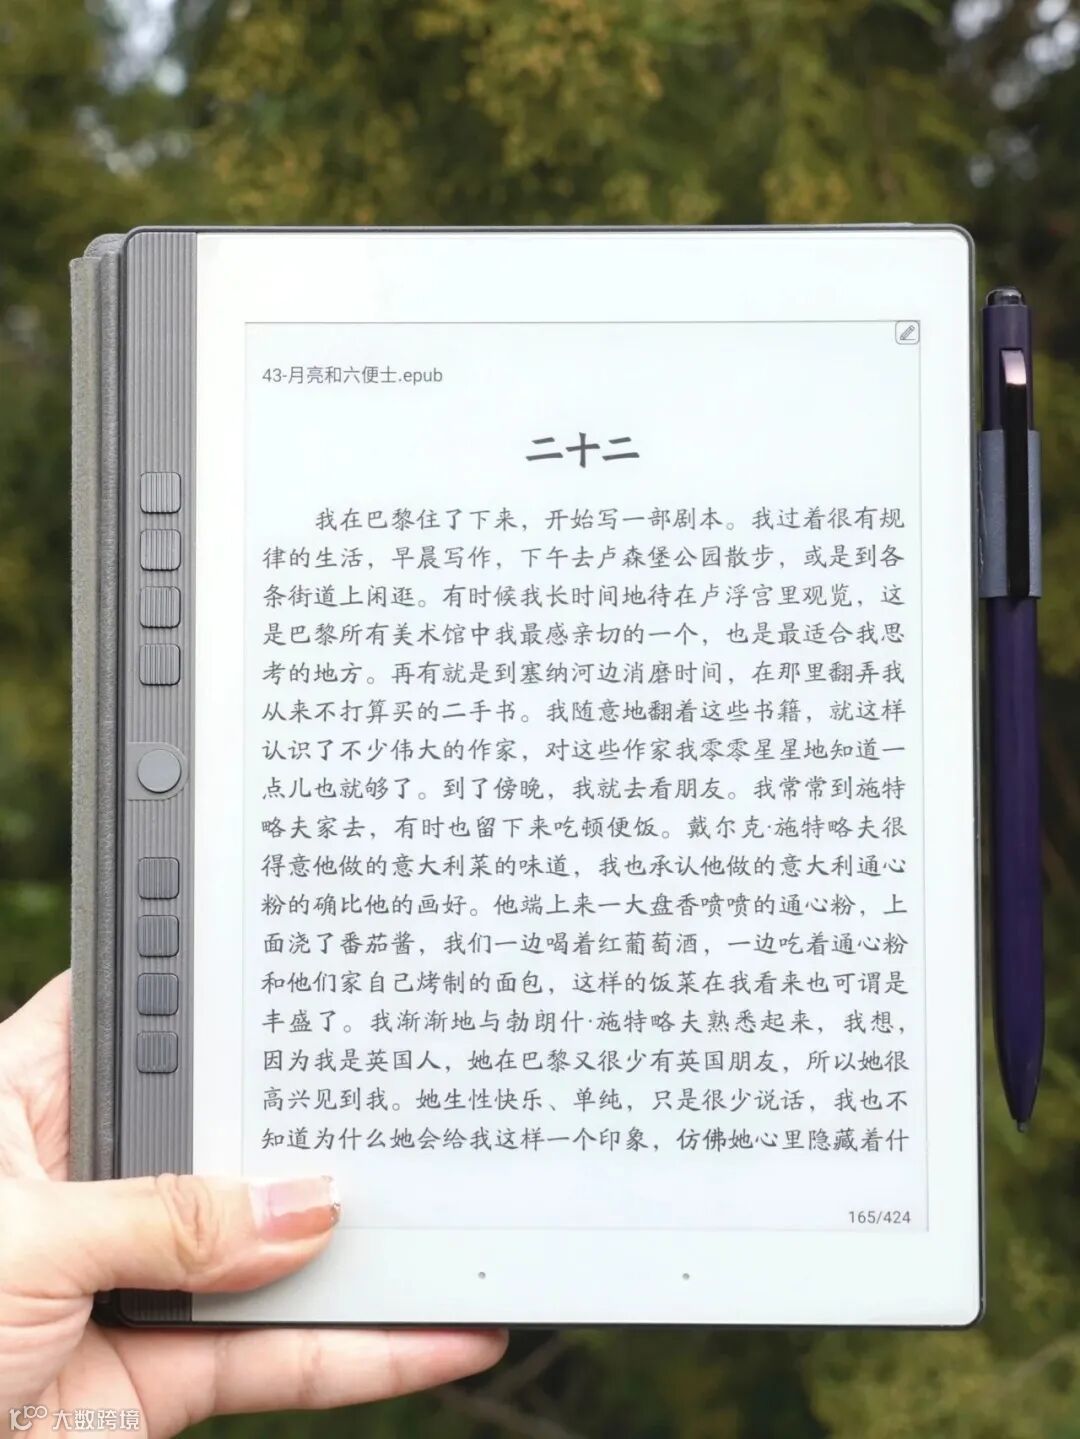 43-月亮和六便士.epub
二十二
我在巴黎住了下来，开始写一部剧本。我过着很有规
律的生活，早晨写作，下午去卢森堡公园散步，或是到各
条街道上闲逛。有时候我长时间地待在卢浮宫里观览，这
是巴黎所有美术馆中我最感亲切的一个，也是最适合我思
考的地方。再有就是到塞纳河边消磨时间，在那里翻弄我
从来不打算买的二手书。我随意地翻着这些书籍，就这样
认识了不少伟大的作家，对这些作家我零零星星地知道一
点儿也就够了。到了傍晚，我就去看朋友。我常常到施特
略夫家去，有时也留下来吃顿便饭。戴尔克·施特略夫很
得意他做的意大利菜的味道，我也承认他做的意大利通心
粉的确比他的画好。他端上来一大盘香喷喷的通心粉，上
面浇了番茄酱，我们一边喝着红葡萄酒，一边吃着通心粉
和他们家自己烤制的面包，这样的饭菜在我看来也可谓是
丰盛了。我渐渐地与勃朗什·施特略夫熟悉起来，我想，
因为我是英国人，她在巴黎又很少有英国朋友，所以她很
高兴见到我。她生性快乐、单纯，只是很少说话，我也不
知道为什么她会给我这样一个印象，仿佛她心里隐藏着什
165/424
大数跨境